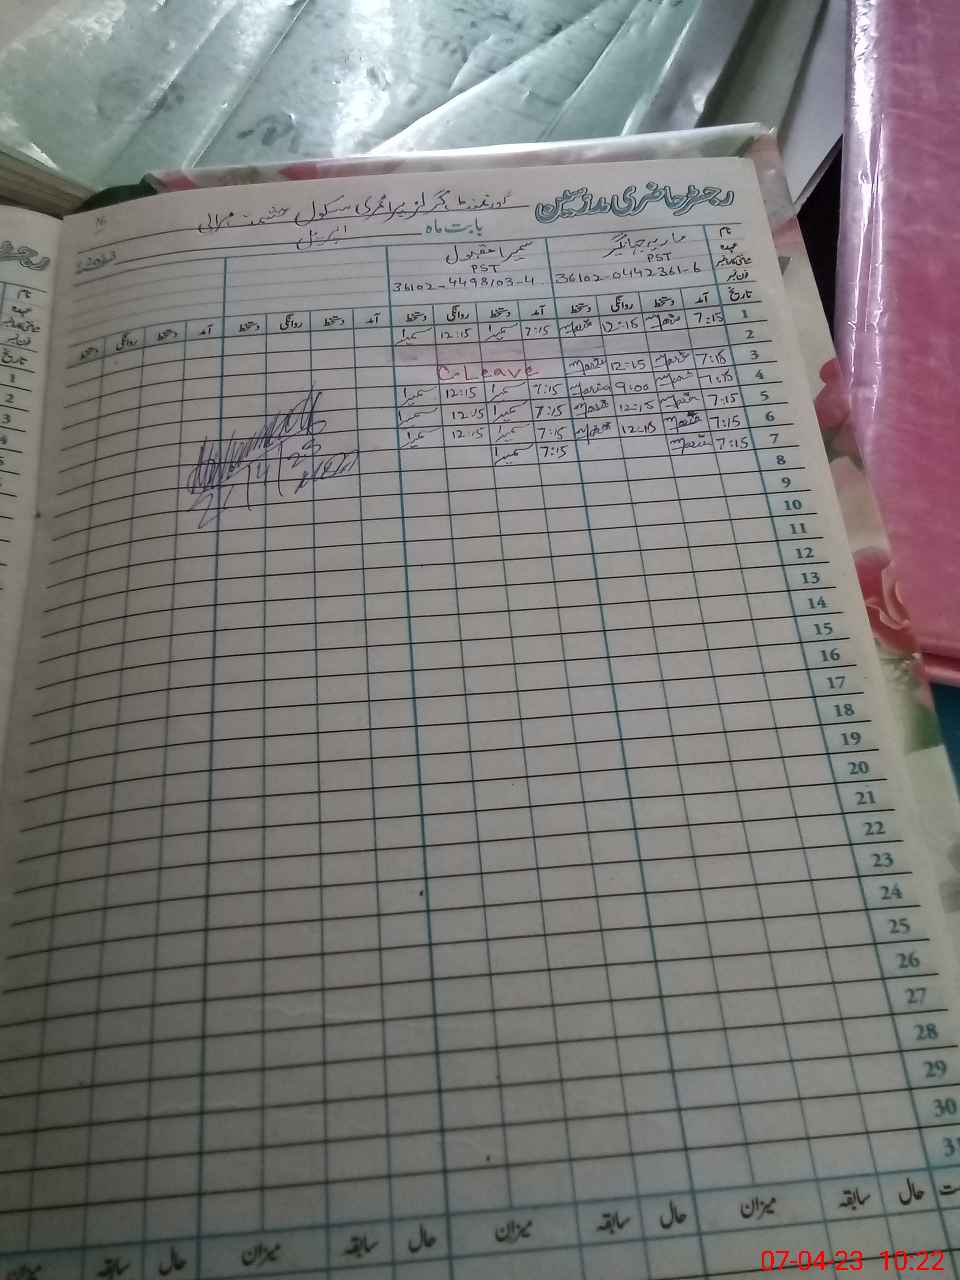 رجسٹر حاضری ملازمین گورنمنٹ گرلز پرائمری سکول حشمت مرالی
بابت ماہ اپریل
نام ماریہ جہانگیر سمیرا مقبول
عہدہ PST PST
36102-0442361-6 36102-4498103-4
تاریخ آمد دستخط روانگی دستخط آمد دستخط روانگی دستخط آمد دستخط روانگی دستخط آمد دستخط روانگی دستخط
1 7:15 Maria 12:15 Maria 7:15 سمیرا 12:15 سمیرا
2
3 7:15 Maria 12:15 Maria C-Leave
4 7:15 Maria 9:00 Maria 7:15 سمیرا 12:15 سمیرا
5 7:15 Maria 12:15 Maria 7:15 سمیرا 12:15 سمیرا
6 7:15 Maria 12:15 Maria 7:15 سمیرا 12:15 سمیرا
7 7:15 Maria 7:15 سمیرا
8
9
10
11
12
13
14
15
16
17
18
19
20
21
22
23
24
25
26
27
28
29
30
31
حال سابقہ میزان حال سابقہ میزان حال سابقہ میزان حال سابقہ میزان
07-04-23 10:22